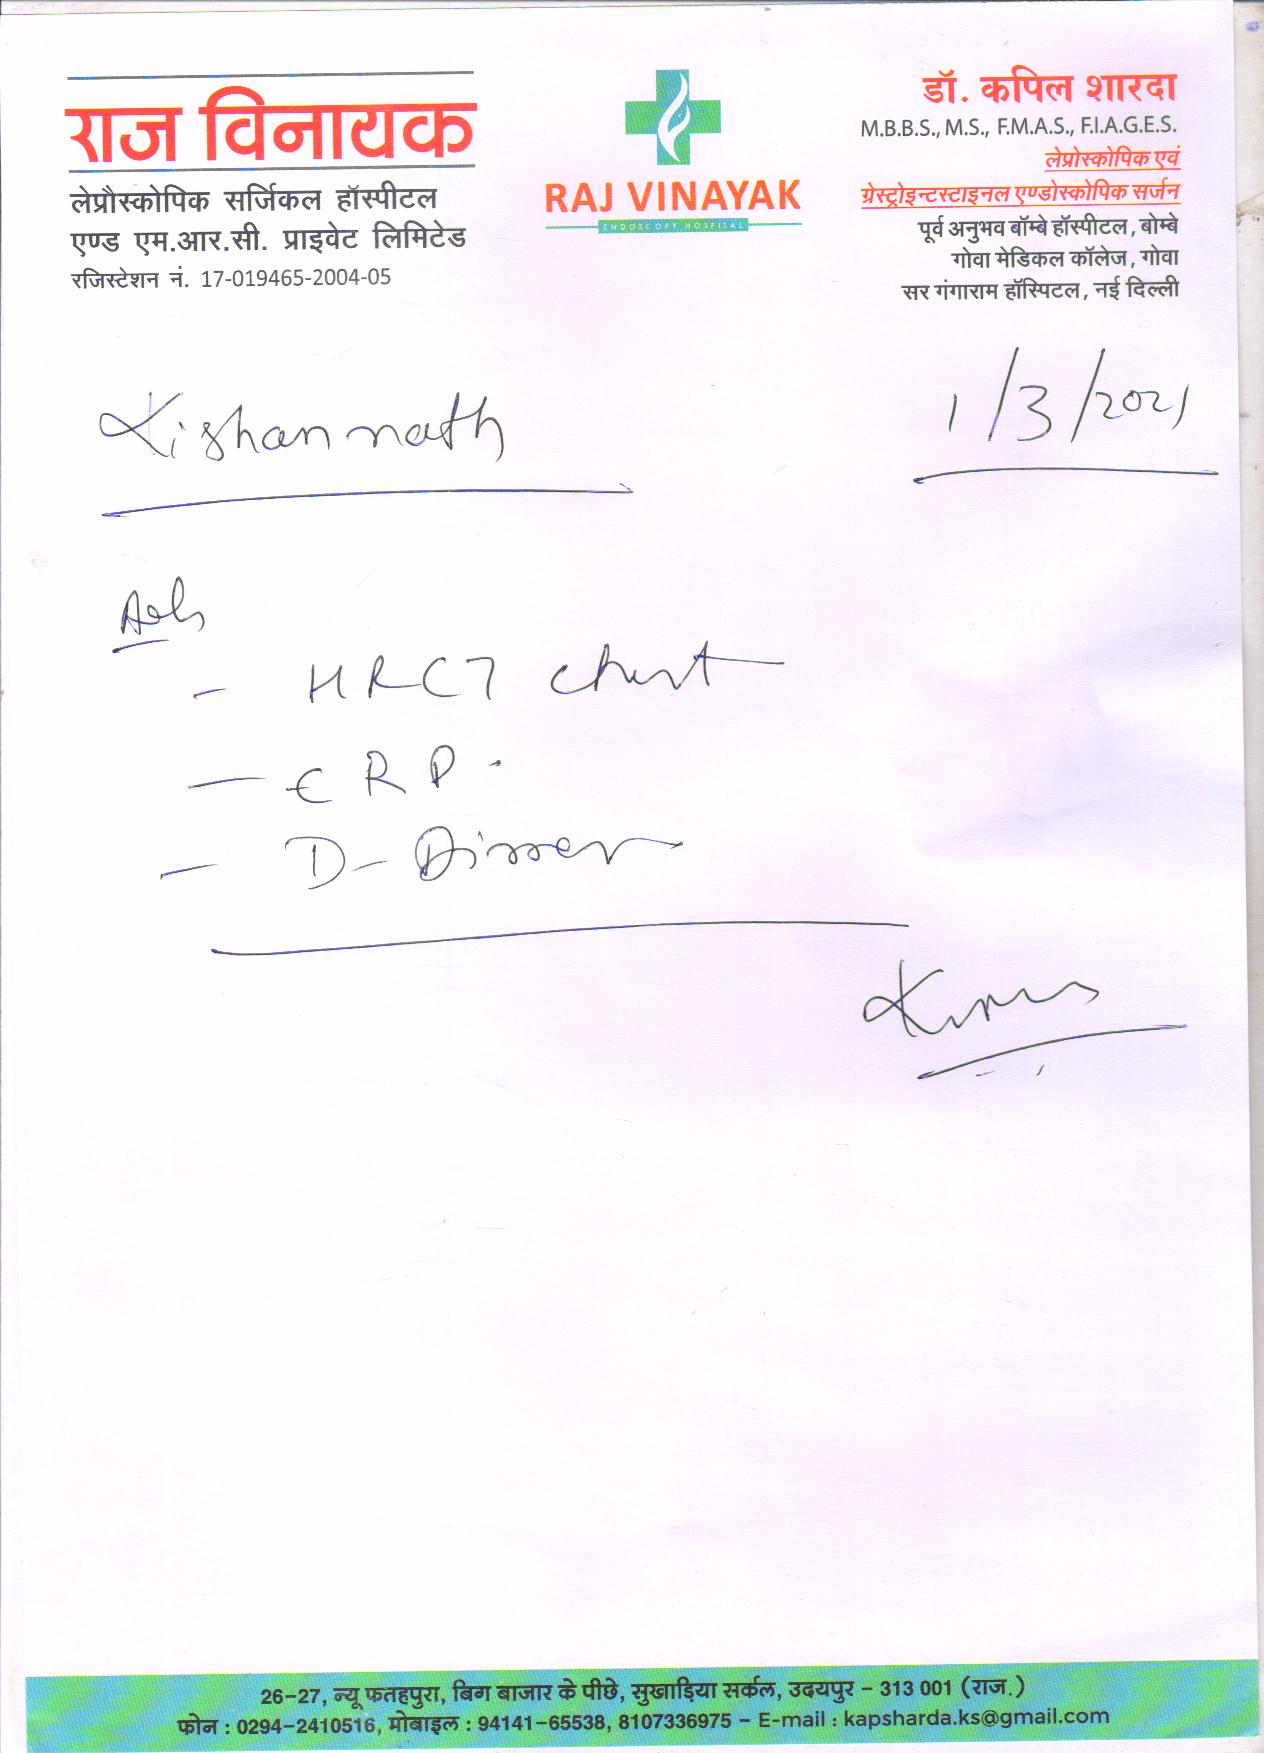 राज विनायक
लेप्रौस्कोपिक सर्जिकल हॉस्पीटल
एण्ड एम.आर.सी. प्राइवेट लिमिटेड
रजिस्टेशन नं. 17-019465-2004-05
RAJ VINAYAK
ENDOSCOPY HOSPITAL
डॉ. कपिल शारदा
M.B.B.S., M.S., F.M.A.S., F.I.A.G.E.S.
लेप्रोस्कोपिक एवं
ग्रेस्ट्रोइन्टस्टाइनल एण्डोस्कोपिक सर्जन
पूर्व अनुभव बॉम्बे हॉस्पीटल, बोम्बे
गोवा मेडिकल कॉलेज, गोवा
सर गंगाराम हॉस्पिटल, नई दिल्ली
Kishannath
1/3/2021
- HRCT chest
- CRP.
- D-Dimer
26-27, न्यू फतहपुरा, बिग बाजार के पीछे, सुखाड़िया सर्कल, उदयपुर - 313 001 (राज.)
फोन : 0294-2410516, मोबाइल : 94141-65538, 8107336975 - E-mail : kapsharda.ks@gmail.com